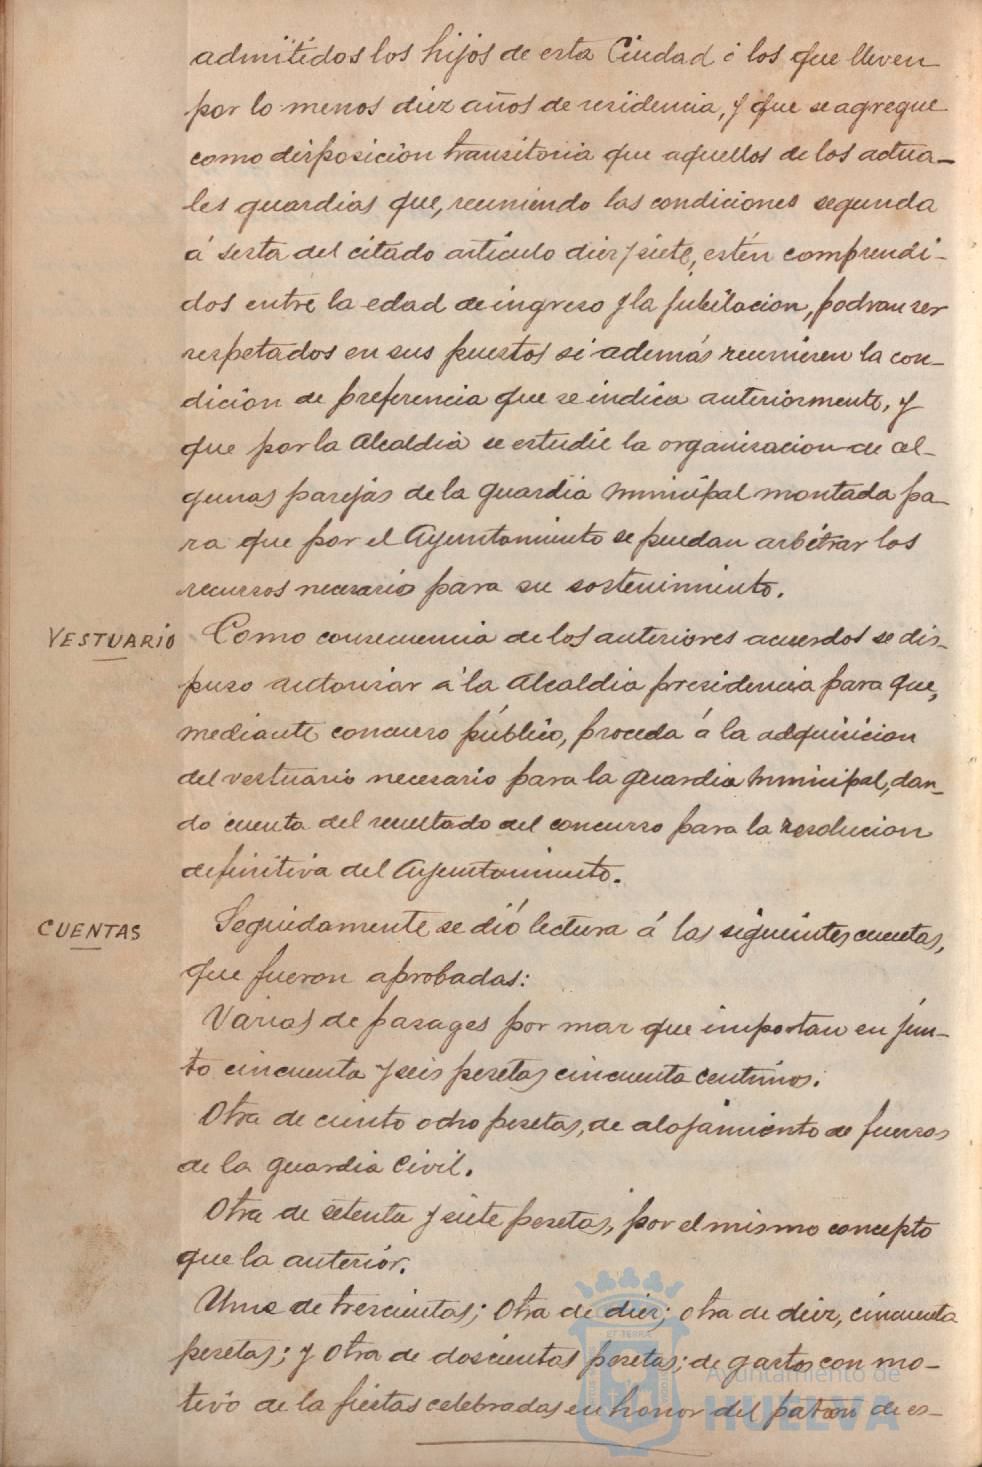 admitidos los hijos de esta Ciudad ó los que lleven
por lo menos diez años de residencia, y que se agregue
como disposicion transitoria que aquellos de los actua-
les guardias que, reuniendo las condiciones segunda
á sesta del citado artículo diez y siete, estén comprendi-
dos entre la edad de ingreso y la jubilacion, podran ser
respetados en sus puestos si además reunieren la con-
dicion de preferencia que se indica anteriormente, y
que por la Alcaldia se estudie la organizacion de al-
gunas parejas de la guardia municipal montada pa-
ra que por el Ayuntamiento se puedan arbitrar los
recursos necesario para su sostenimiento.
VESTUARIO Como consecuencia de los anteriores acuerdos se dis-
puso autorizar á la Alcaldia presidencia para que,
mediante concurso público, proceda á la adquisicion
del vestuario necesario para la guardia municipal, dan-
do cuenta del resultado del concurso para la resolucion
definitiva del Ayuntamiento.
CUENTAS Seguidamente se dió lectura á las siguientes cuentas,
que fueron aprobadas:
Varias de pasages por mar que importan en jun-
to cincuenta y seis pesetas cincuenta centimos.
Otra de ciento ocho pesetas, de alojamiento de fuerzas
de la guardia Civil.
Otra de setenta y siete pesetas, por el mismo concepto
que la anterior.
Una de trescientas; Otra de diez; otra de diez, cincuenta
pesetas; y Otra de doscientas pesetas; de gastos con mo-
tivo de la fiestas celebradas en honor del patrón de es-
Ayuntamiento de
HUELVA